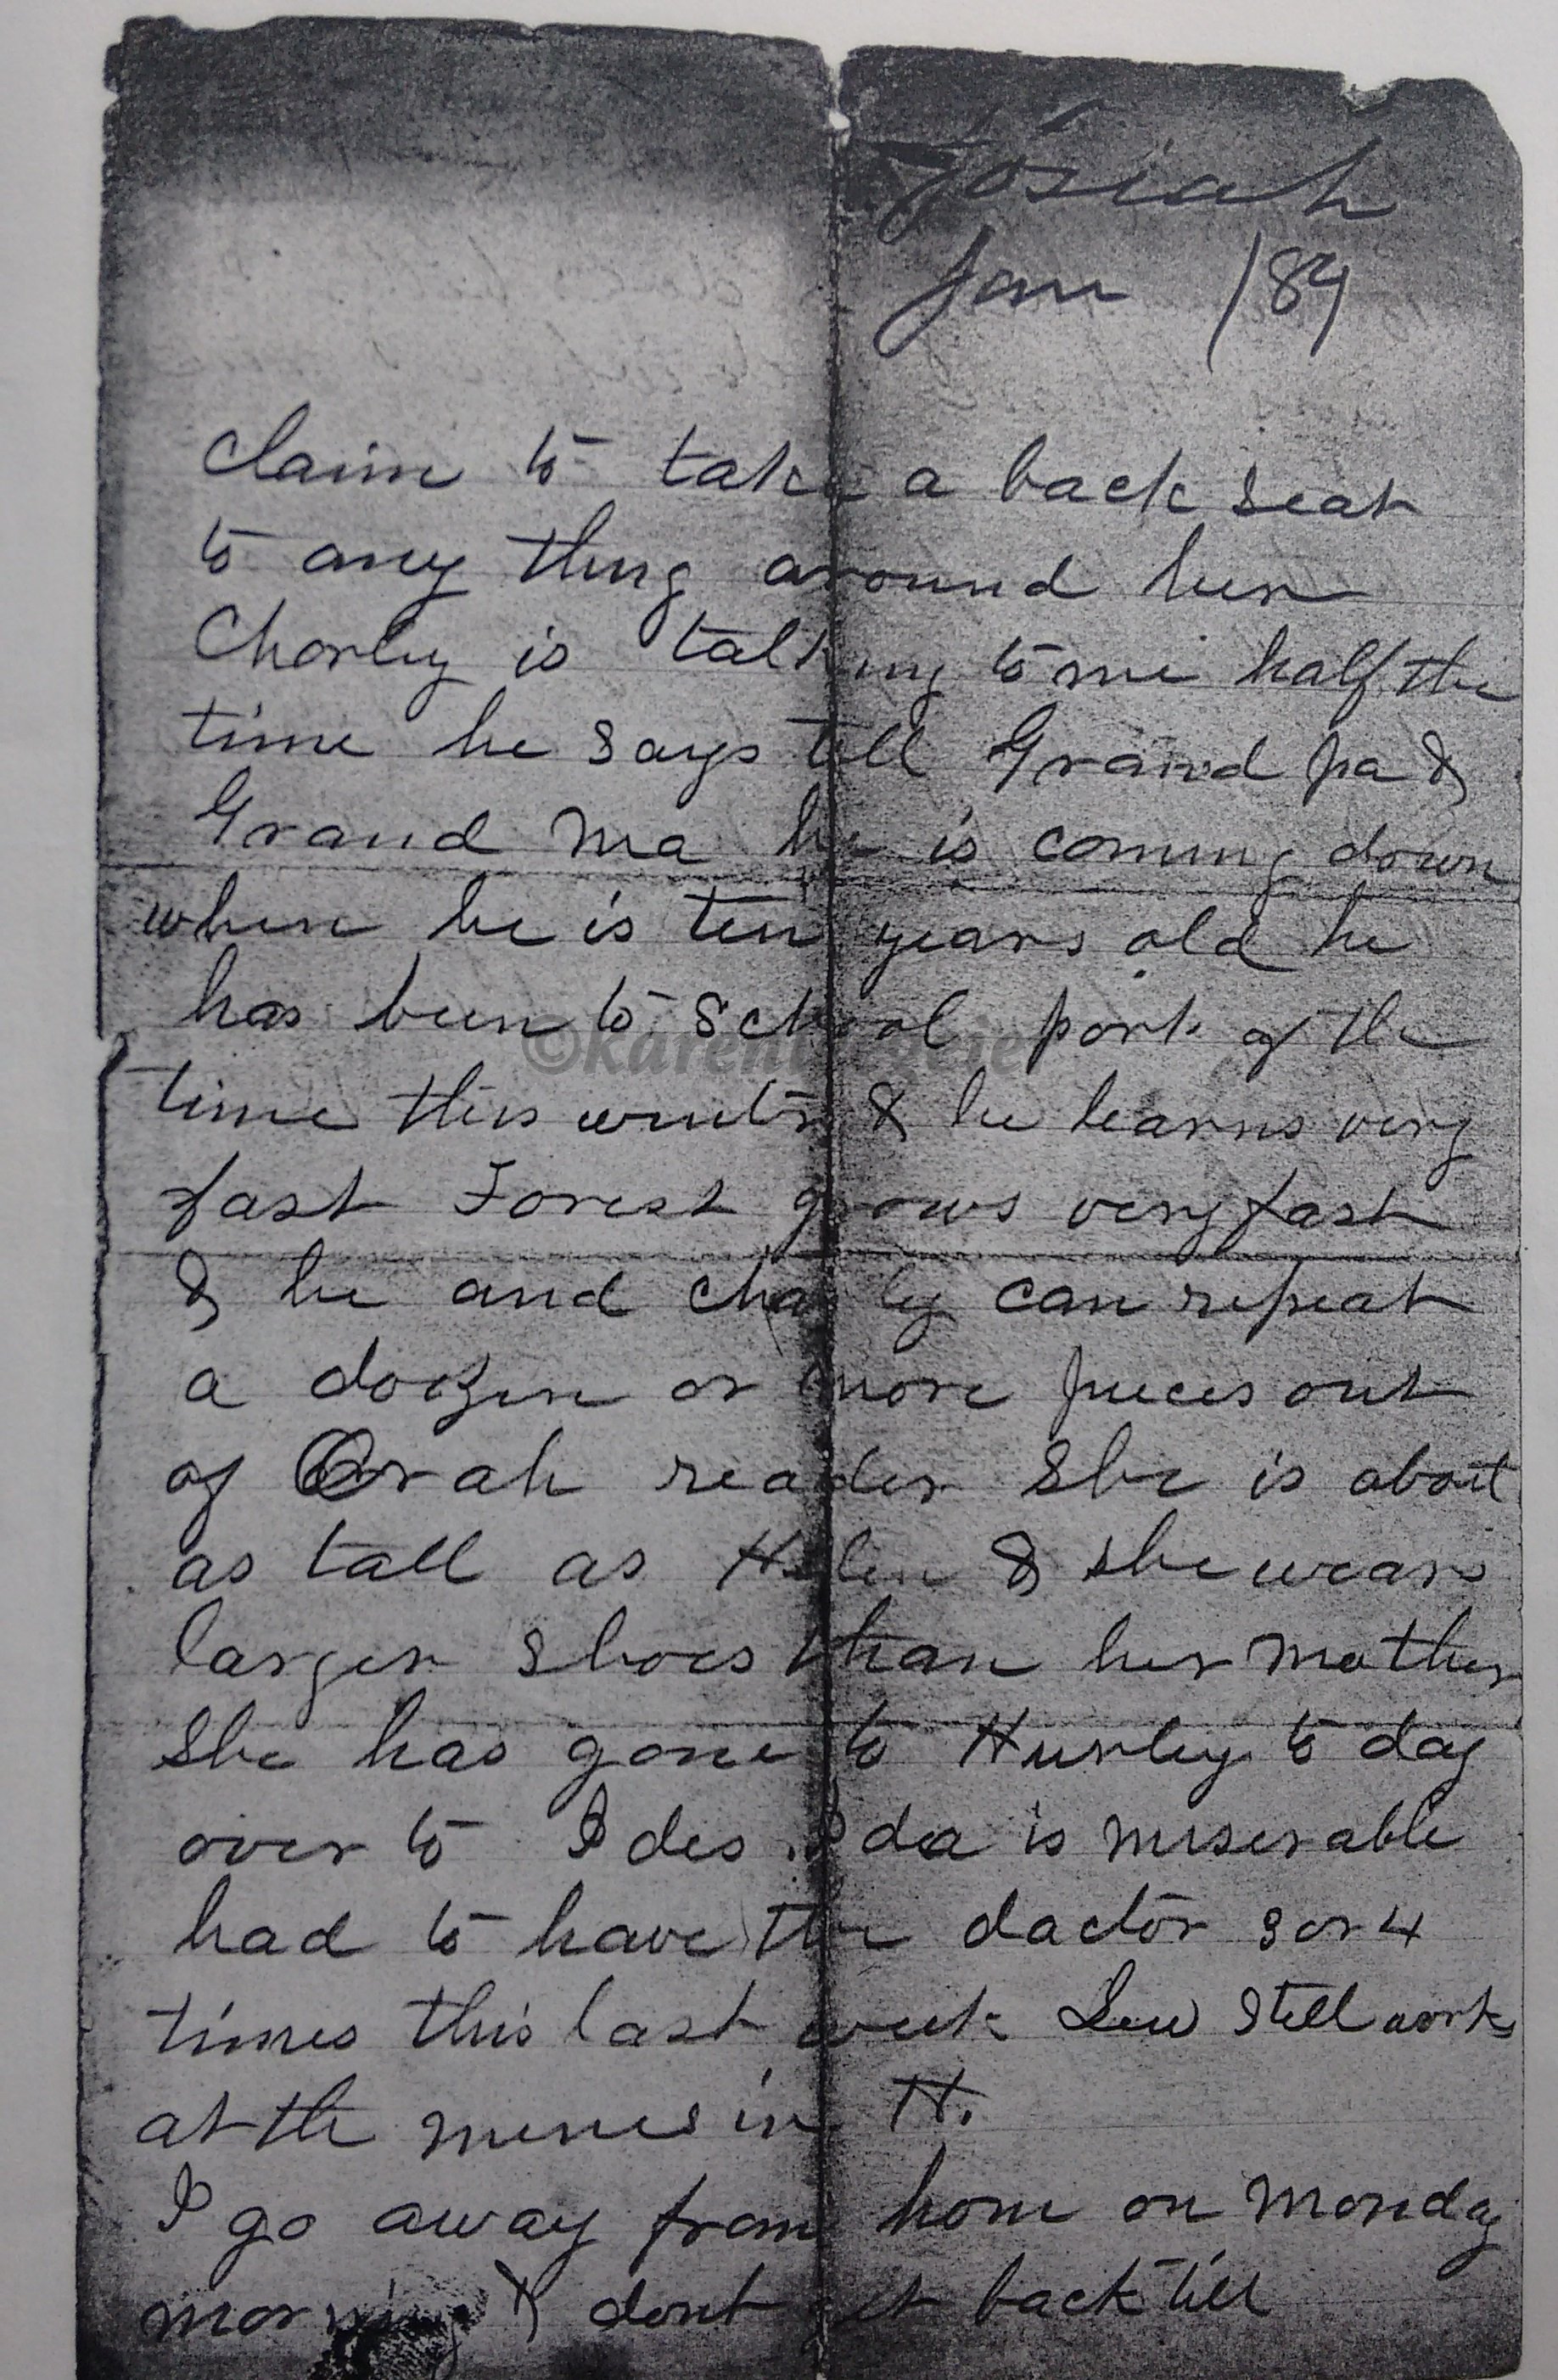 Josiah
Jan /89
claim to take a back seat
to any thing around her
Charley is talking to me half the
time he says tell Grand pa &
Grand Ma he is coming down
when he is ten years old he
has been to School part of the
time this winter & he learns very
fast Forest grows very fast
& he and Charley can repeat
a dozen or more pieces out
of Orah reader She is about
as tall as Helen & she wears
larger Shoes than her Mother
She has gone to Hurley to day
over to Ides Ida is miserable
had to have the dactor 3 or 4
times this last week Lew Still works
at the mines in H.
I go away from home on Monday
morning & dont get back till